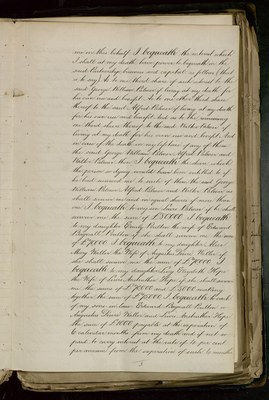 me in this behalf I bequeath the interest which
I shall at my death have power to bequeath in the
said Partnership business and capital as follows (that
is to say) As to one third share of such interest to the
said George William Petter if living at my death for
his own use and benefit As to one other third share
thereof to the said Alfred Petter if living at my death
for his own use and benefit And as to the remaining
one third share thereof to the said Walter Petter if
living at my death for his own use and benefit And
in case of the death in my lifetime of any of them
the said George William Petter Alfred Petter and
Walter Petter then I bequeath the share which
the person so dying would have been entitled to if
he had survived me to such of them the said George
William Petter Alfred Petter and Walter Petter as
shall survive me and in equal shares if more than
one I bequeath to my son if he shall
survive me the sum of I bequeath
to my daughter Emily the wife of Edward
Bagnall if she shall survive me the sum
of £7000 I bequeath to my daughter
Mary the Wife of Augustus if
she shall survive me the sum of £7000 I
bequeath to my daughter Lucy Elizabeth Hope
the Wife of Hope if she shall survive
me the sum of £7000 and £ making
together the sum of £ I bequeath to each
of my sons in law Edward Bagnall
Augustus and Hope
the sum of £1000 payable at the expiration of
6 calendar months from my death and if not so
paid to carry interest at the rate of per cent
per annum from the expiration of such 6 months